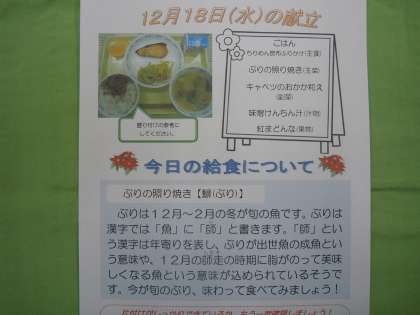 12月18日(水)の献立
ごはん
ちりめん昆布ふりかけ(主食)
ぶりの照り焼き(主菜)
キャベツのおかか和え
(副菜)
味噌けんちん汁(汁物)
紅まどんな(果物)
盛り付けの参考に
してください。
今日の給食について
ぶりの照り焼き【鰤(ぶり)】
ぶりは12月～2月の冬が旬の魚です。ぶりは
漢字では「魚」に「師」と書きます。「師」とい
う漢字は年寄りを表し、ぶりが出世魚の成魚とい
う意味や、12月の師走の時期に脂がのって美味
しくなる魚という意味が込められているそうで
す。今が旬のぶり、味わって食べてみましょう！